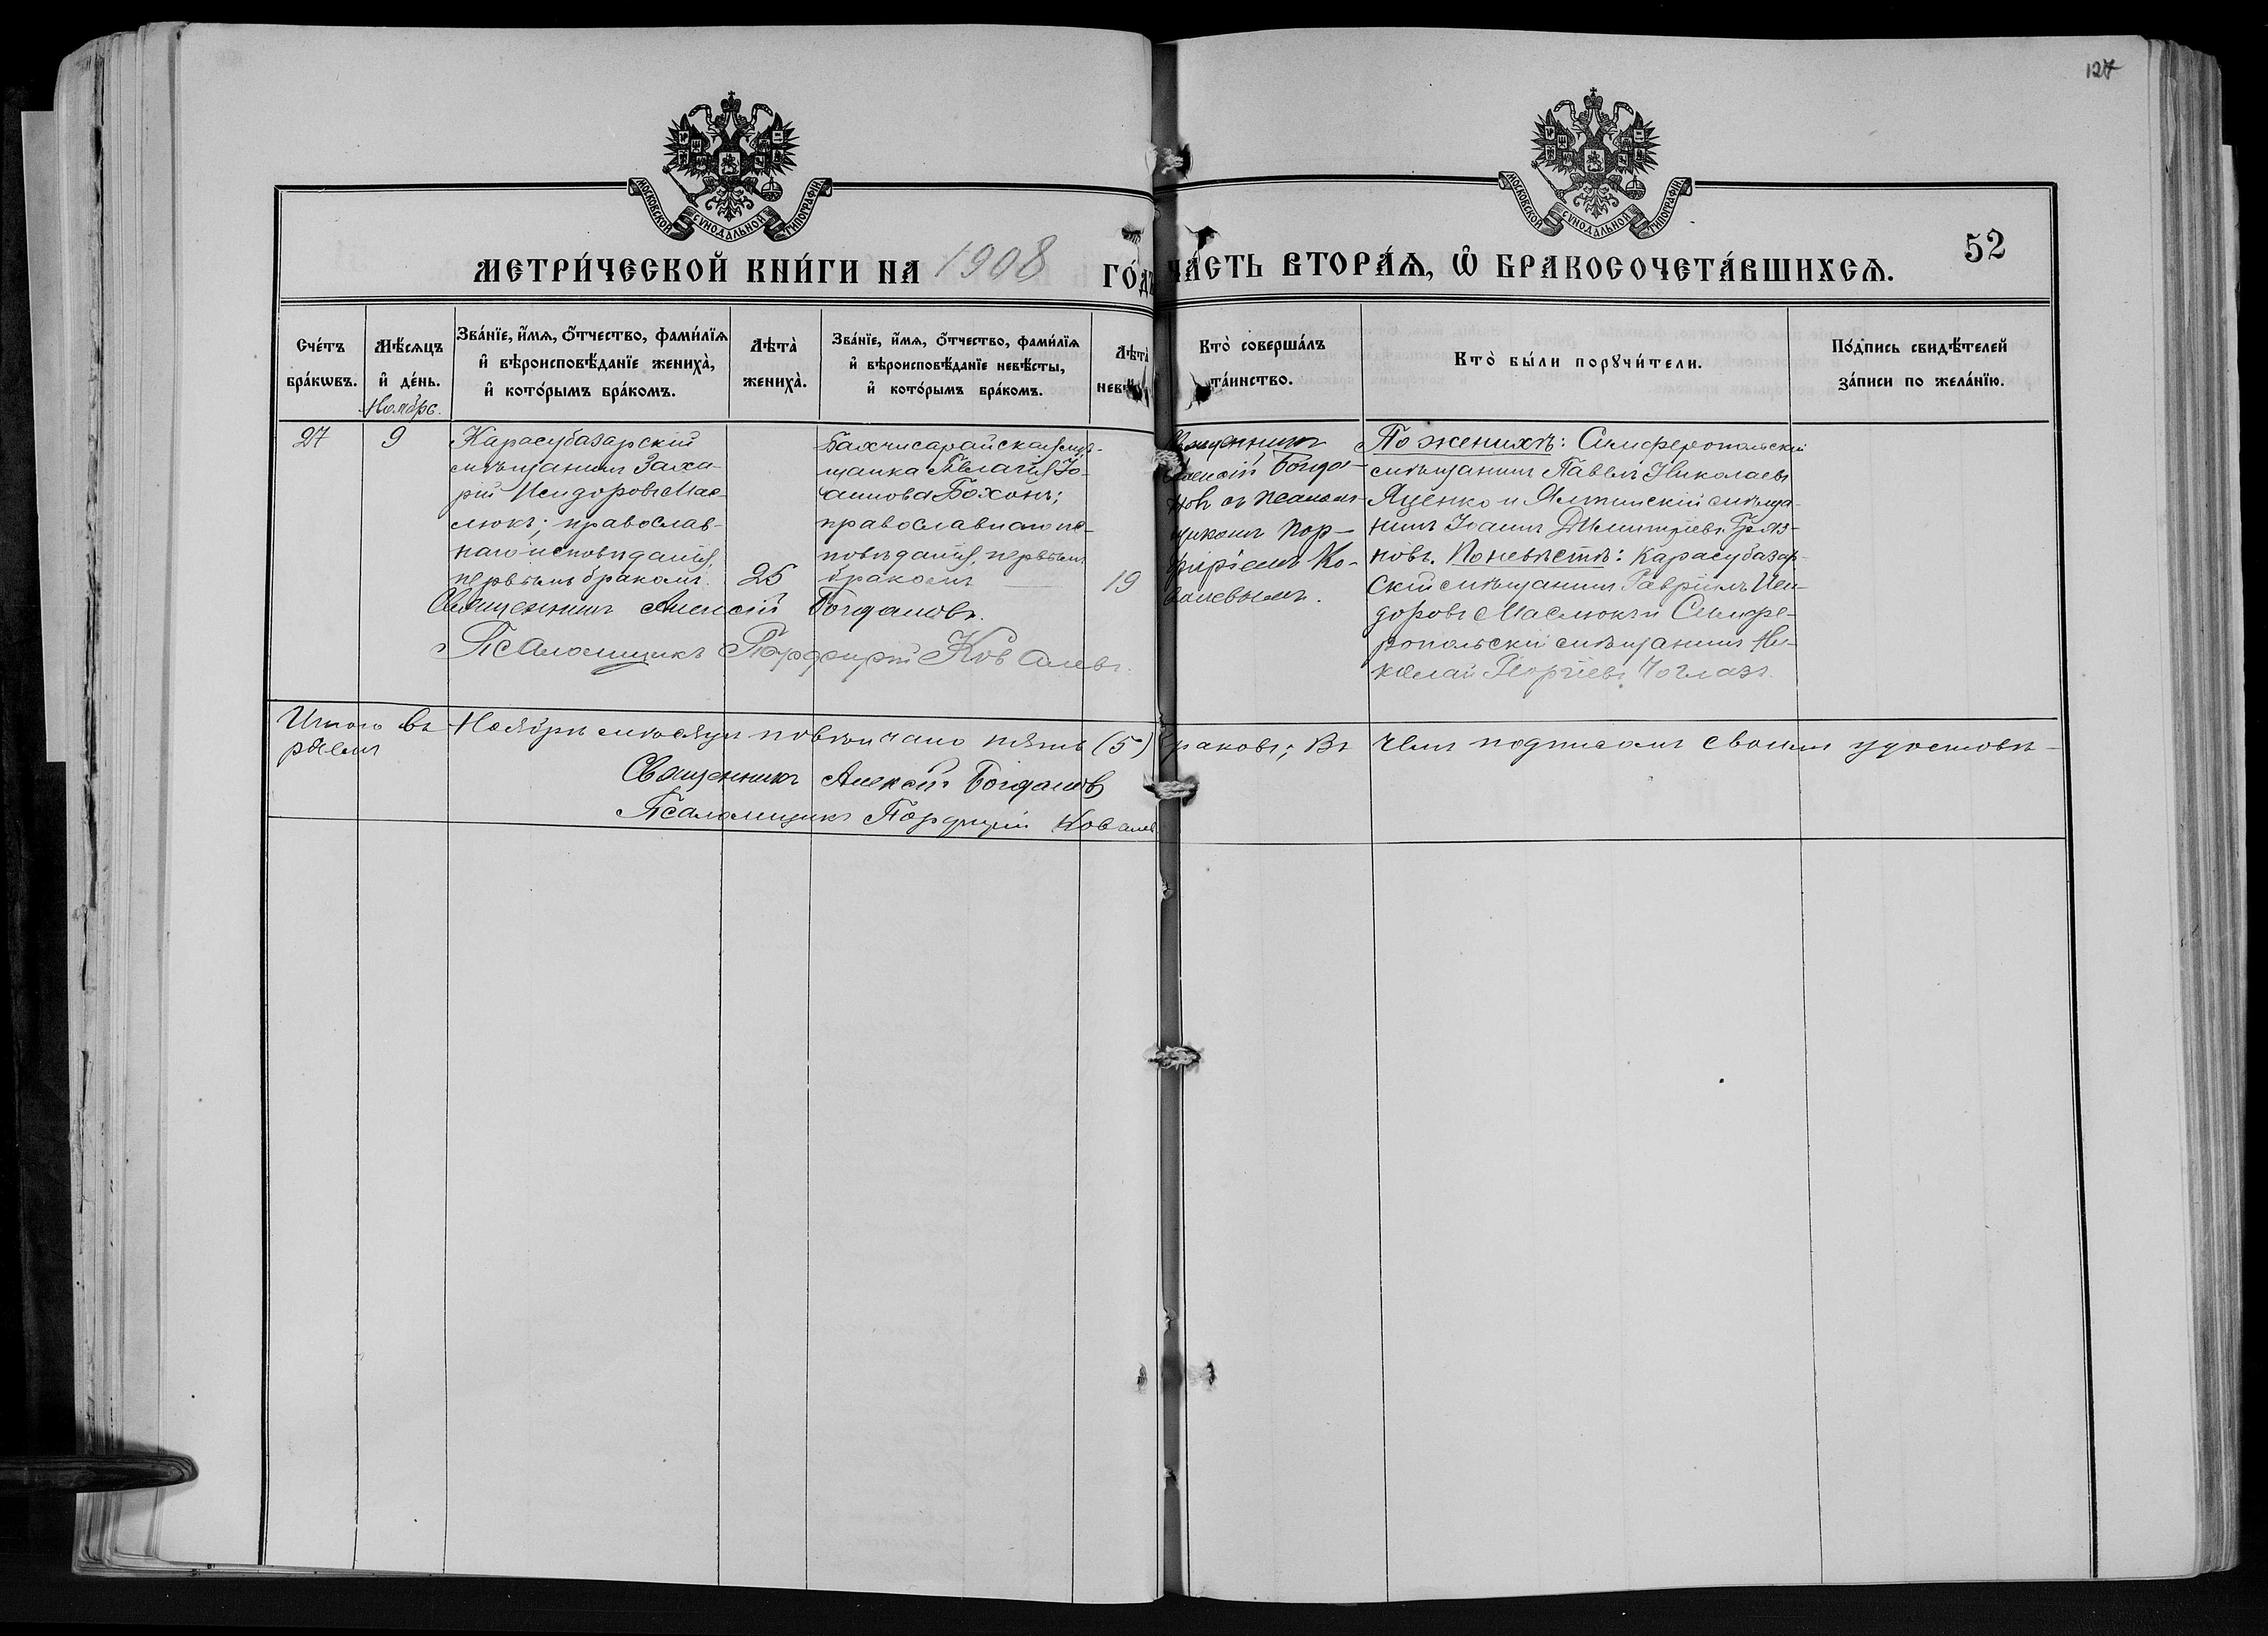 127
МОСКОВСКОЙ СѴНОДАЛЬНОЙ ТИПОГРАФІИ
МОСКОВСКОЙ СѴНОДАЛЬНОЙ ТИПОГРАФІИ
МЕТРИ́ЧЕСКОЙ КНИ́ГИ НА 1908 ГО́ДЪ
ЧА́СТЬ ВТОРА́Ѧ, Ѿ БРАКОСОЧЕТА́ВШИХСѦ.
52
Сче́тъ
бра́кѡвъ.
Мѣ́сѧцъ
и҆ де́нь.
Ноябрь.
Зва́нїе, и҆́мѧ, ѻ҆́тчество, фами́лїѧ
и҆ вѣроисповѣ́данїе жениха̀,
и҆ кото́рымъ бра́комъ.
Лѣта̀
жениха̀.
Зва́нїе, и҆́мѧ, ѻ҆́тчество, фами́лїѧ
и҆ вѣроисповѣ́данїе невѣ́сты,
и҆ кото́рымъ бра́комъ.
Лѣта̀
невѣ́
Кто̀ соверша́лъ
та́инство.
Кто̀ бы́ли порꙋчи́тели.
По́дпись свидѣ́телей
за́писи по жела́нїю.
27
9
Карасубазарскій
мѣщанинъ Заха-
рій Исидоровъ Мас-
люкъ; православ-
наго исповѣданія,
первымъ бракомъ.
25
Бахчисарайская мѣ-
щанка Пелагія Іо-
аннова Бохонъ;
православнаго ис-
повѣданія, первымъ
бракомъ
19
Священникъ
Алексій Богда-
новъ съ псаломъ-
щикомъ Пор-
фиріемъ Ко-
валевымъ.
По женихѣ: Симферопольскій
мѣщанинъ Павелъ Николаевъ
Яценко и Ялтинскій мѣща-
нинъ Іоаннъ Димитріевъ Гряз-
новъ. По невѣстѣ: Карасубазар-
скій мѣщанинъ Гавріилъ Иси-
доровъ Маслюкъ и Симфе-
ропольскій мѣщанинъ Ни-
колай Георгіевъ
Священникъ Алексій Богдановъ.
Псаломщикъ Порфирій Ковалевъ.
Итого въ Ноябрѣ мѣсяцѣ повѣнчано пять (5) раковъ; Въ чемъ подписомъ своимъ удостовѣ-
ряемъ
Священникъ Алексій Богдановъ
Псаломщикъ Порфирій Ковалевъ